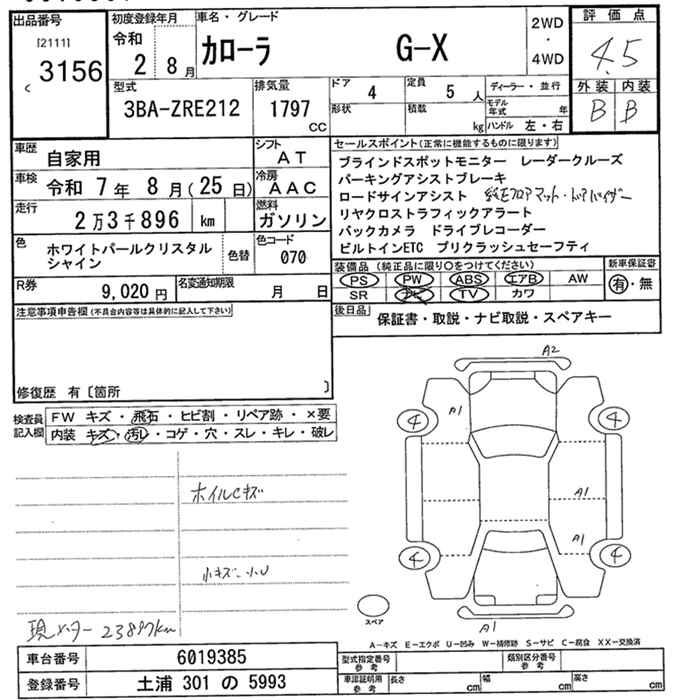 出品番号
[2111]
3156
初度登録年月
令和
2 8月
車名・グレード
カローラ G-X
2WD
・
4WD
評価点
4.5
外装 内装
B B
型式
3BA-ZRE212
排気量
1797
CC
ドア 4
定員 5 人
形状
積数 kg
ディーラー・並行
モデル年式 年
ハンドル 左・右
車歴
自家用
シフト
AT
車検 令和 7年 8月(25日)
冷房
AAC
走行
2万3千896 km
燃料
ガソリン
色
ホワイトパールクリスタル
シャイン
色替
色コード
070
R券
9,020円
名変通知期限
月 日
セールスポイント(正常に機能するものに限ります)
ブラインドスポットモニター レーダークルーズ
パーキングアシストブレーキ
ロードサインアシスト 純正フロアマット・ドアバイザー
リヤクロストラフィックアラート
バックカメラ ドライブレコーダー
ビルトインETC プリクラッシュセーフティ
装備品(純正品に限り〇をつけてください)
PS PW ABS エアB AW
SR ナビ TV カワ
新車保証書
有・無
後日品
保証書・取説・ナビ取説・スペアキー
注意事項申告欄(不具合内容等は具体的に記入して下さい)
修復歴 有〔箇所 〕
検査員
記入欄
FW キズ・飛石・ヒビ割・リペア跡・×要
内装 キズ・汚レ・コゲ・穴・スレ・キレ・破レ
ホイルCキズ
小キズ・小U
現メーター 23897km
A2
A1
4 4
A1
A1
4 4
A1
スペア
A-キズ E-エクボ U-凹み W-補修跡 S-サビ C-腐食 XX-交換済
車台番号 6019385
登録番号 土浦 301 の 5993
型式指定番号
参考
類別区分番号
参考
車庫証明用
参考
長さ cm
幅 cm
高さ cm